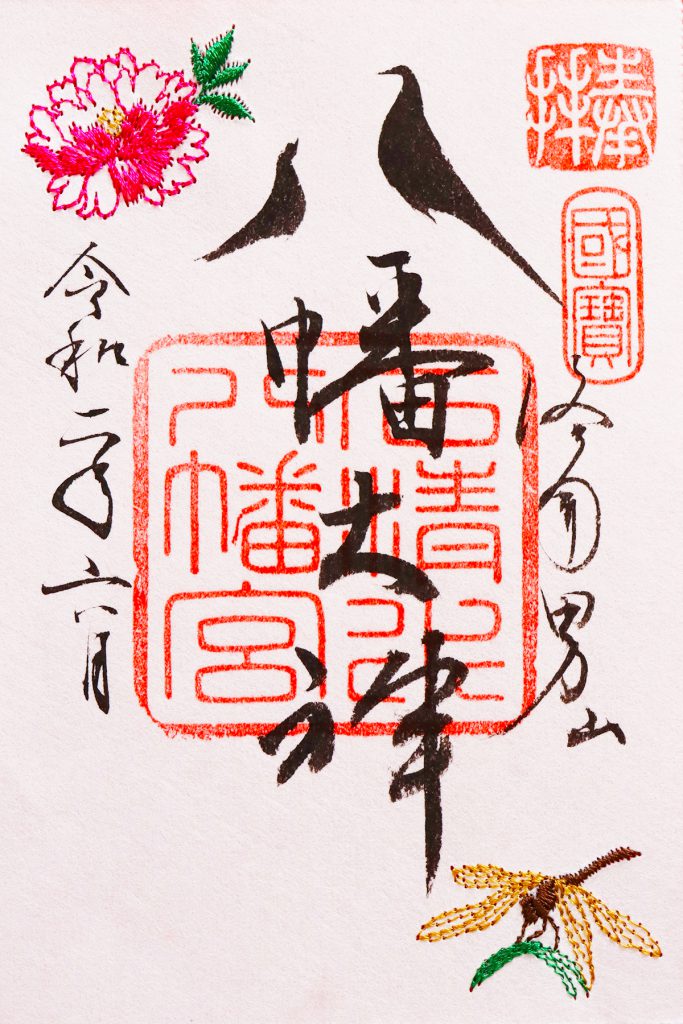 奉拝
國寶
男山
八幡大神
石清水
八幡宮
令和二年六月